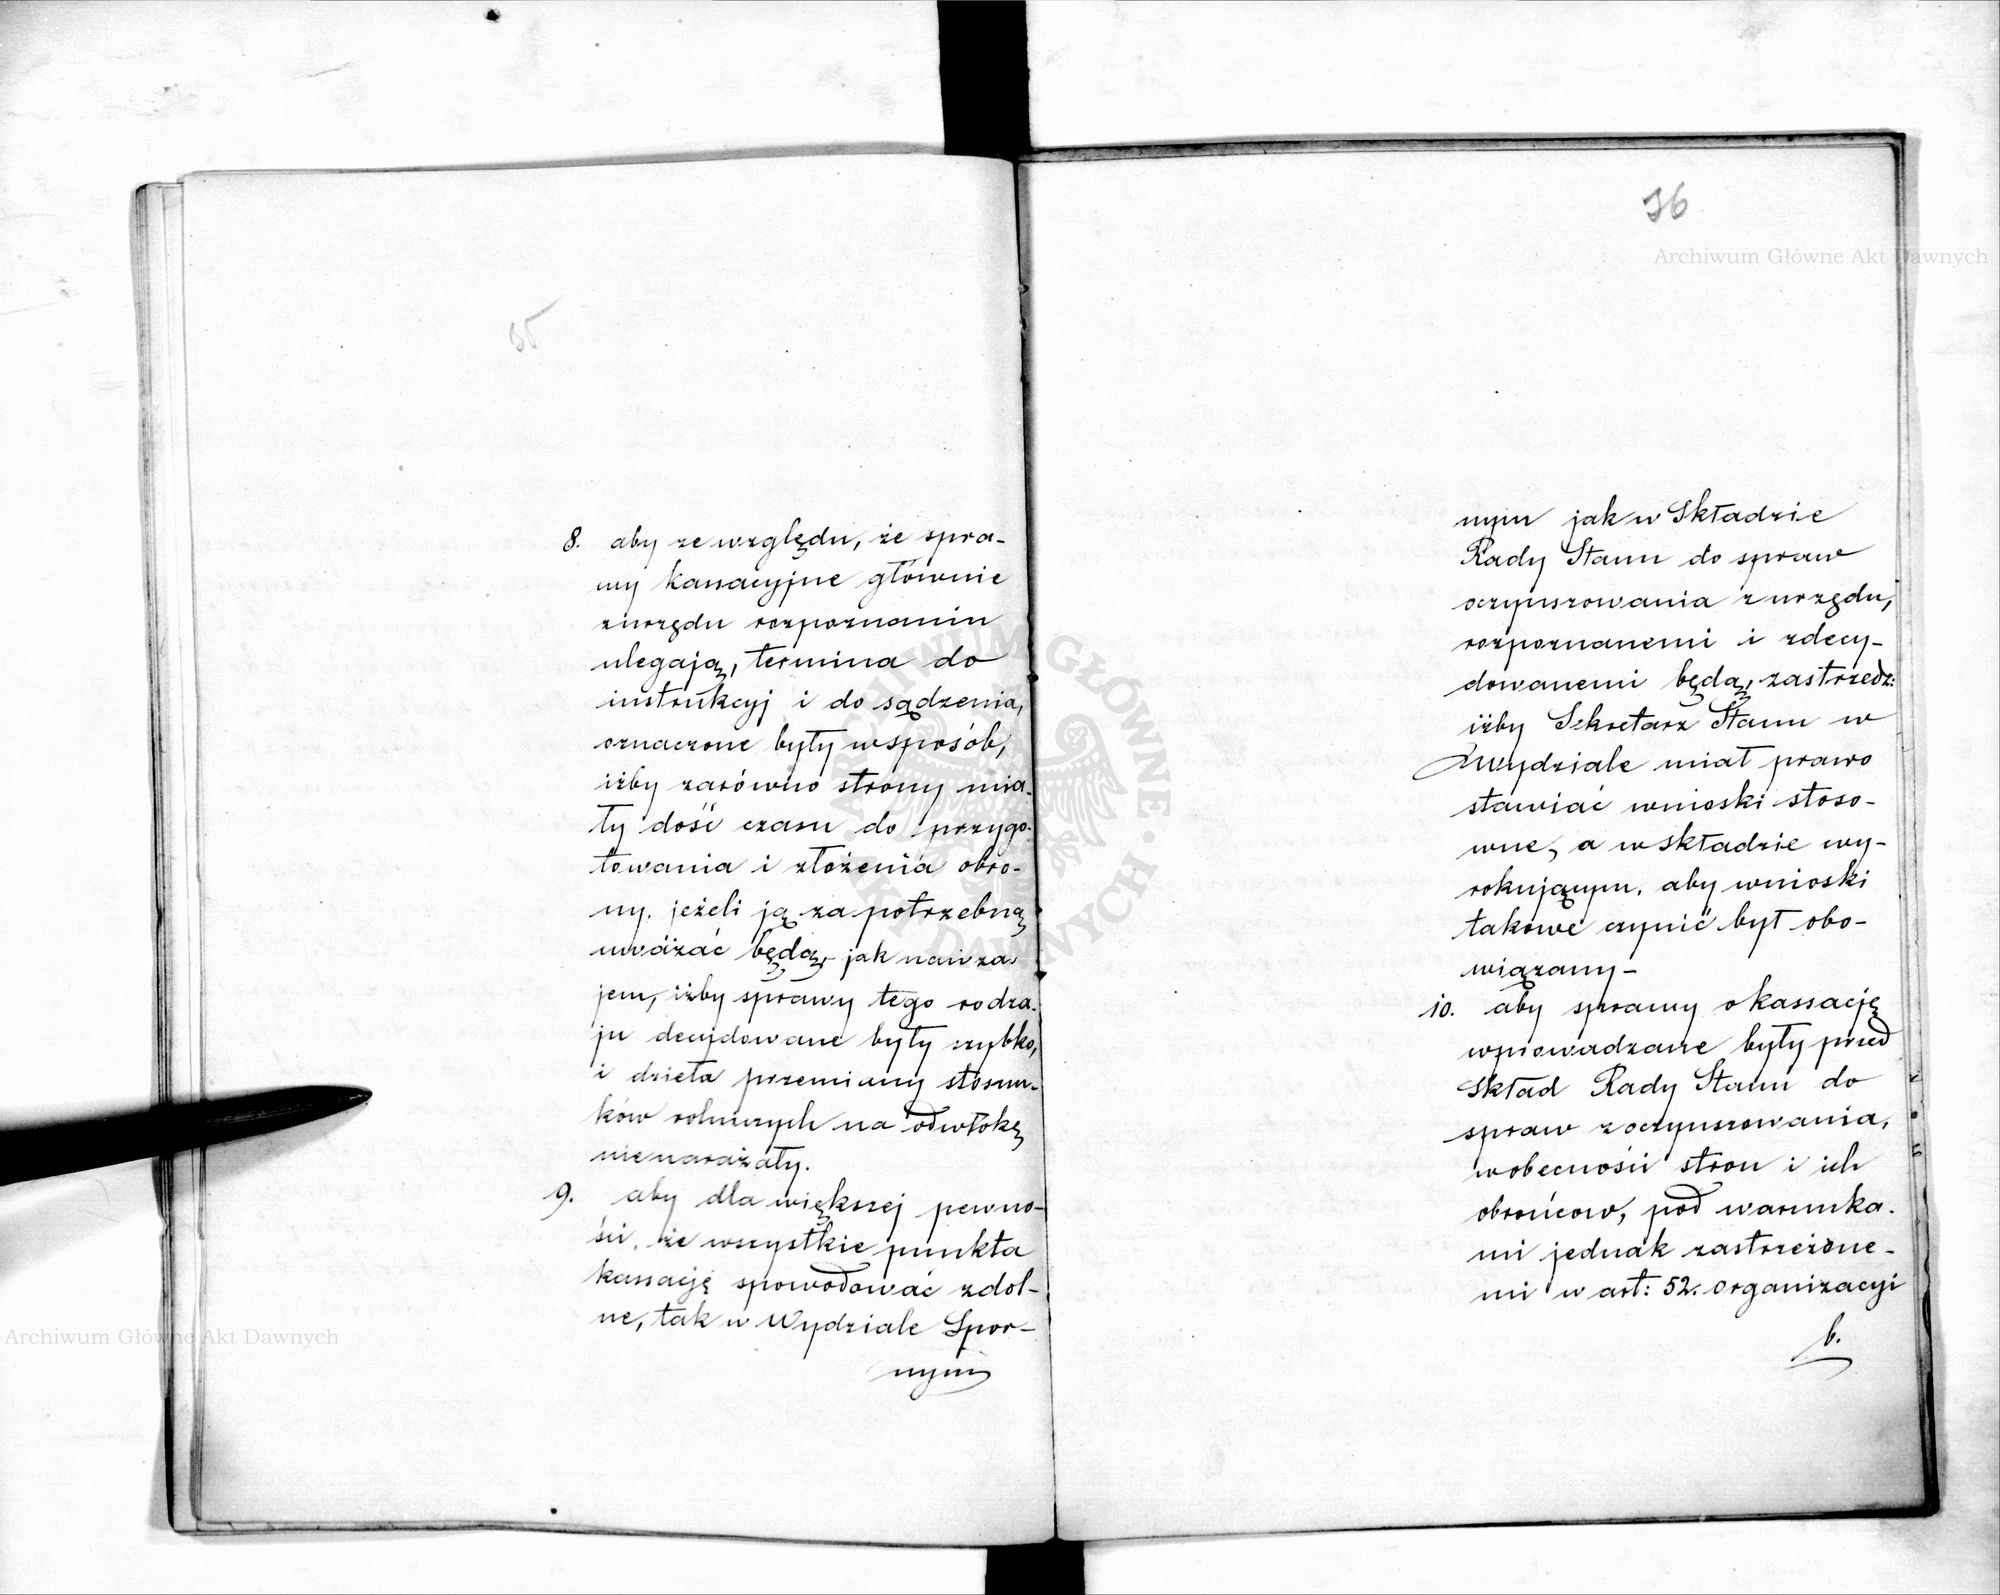 8. aby ze względu, że spra-
wy kassacyjne głównie
z urzędu rozpoznaniu
ulegają, termina do
instrukcyj i do sądzenia,
oznaczone były w sposób,
iżby zarówno strony mia-
ły dość czasu do przygo-
towania i złożenia obro-
ny, jeżeli ją za potrzebną
uważać będą, jak nawza-
jem, iżby sprawy tego rodza-
ju decydowane były szybko,
i dzieła przemiany stosun-
ków rolniczych na odwłokę
nie narażały.
9. aby dla większej pewno-
ści, że wszystkie punkta
kassację spowodować zdol-
ne, tak w Wydziale Spor-
nym
36
nym jak w Składzie
Rady Stanu do spraw
oczynszowania z urzędu,
rozpoznanemi i zdecy-
dowanemi będą, zastrzedz:
iżby Sekretarz Stanu w
Wydziale miał prawo
stawiać wnioski stoso-
wne, a w składzie wy-
rokującym, aby wnioski
takowe czynić był obo-
wiązany -
10. aby sprawy o kassację
wprowadzane były przed
Skład Rady Stanu do
spraw z oczynszowania,
w obecności stron i ich
obrońcow, pod warunka-
mi jednak zastrzeżone-
mi w art: 52. organizacyi
b.
Archiwum Główne Akt Dawnych
Archiwum Główne Akt Dawnych
ARCHIWUM GŁÓWNE AKT DAWNYCH